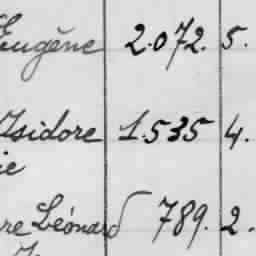 Eugène 2.072. 5.
Isidore 1.535 4.
ie
re Léonard 789. 2.